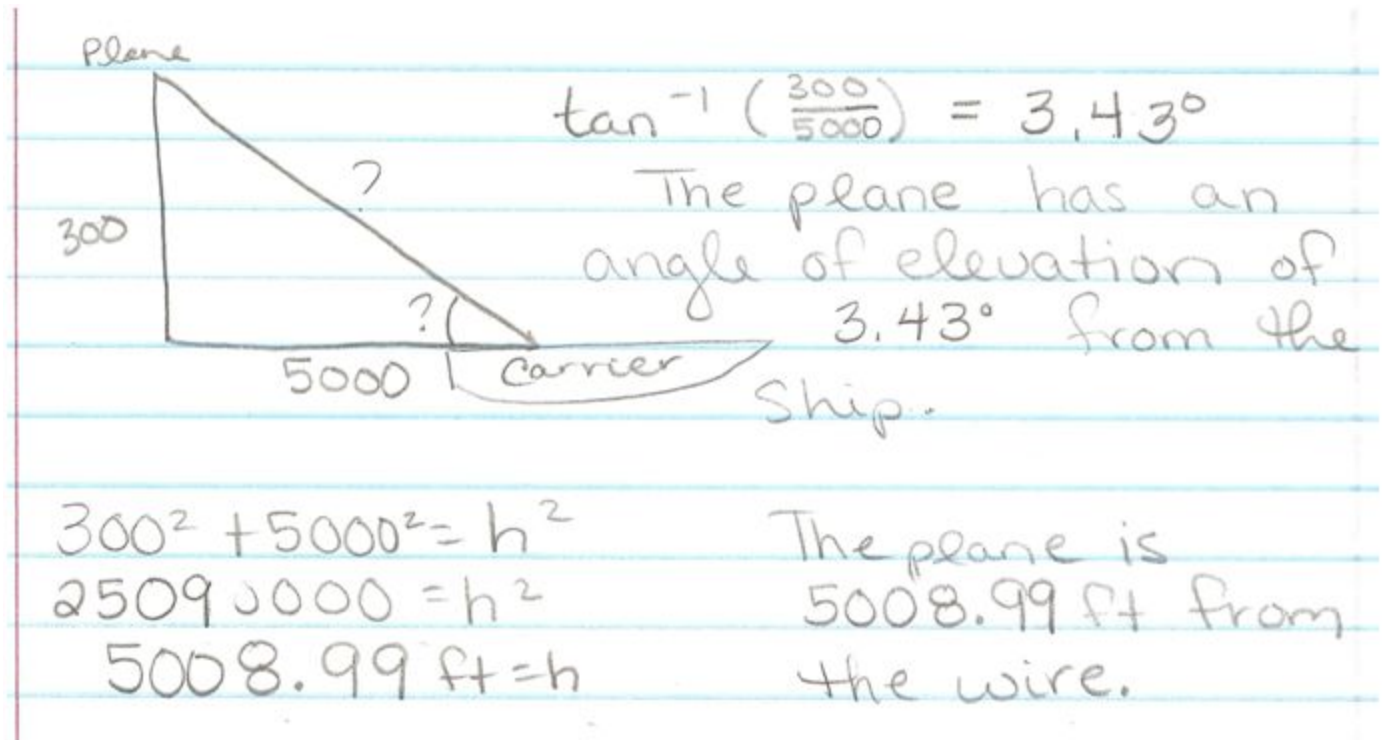 Plane
tan⁻¹ (300/5000) = 3.43°
?
The plane has an
300
angle of elevation of
?
3.43° from the
5000
Carrier
Ship.
300² + 5000² = h²
25090000 = h²
5008.99 ft = h
The plane is
5008.99 ft from
the wire.